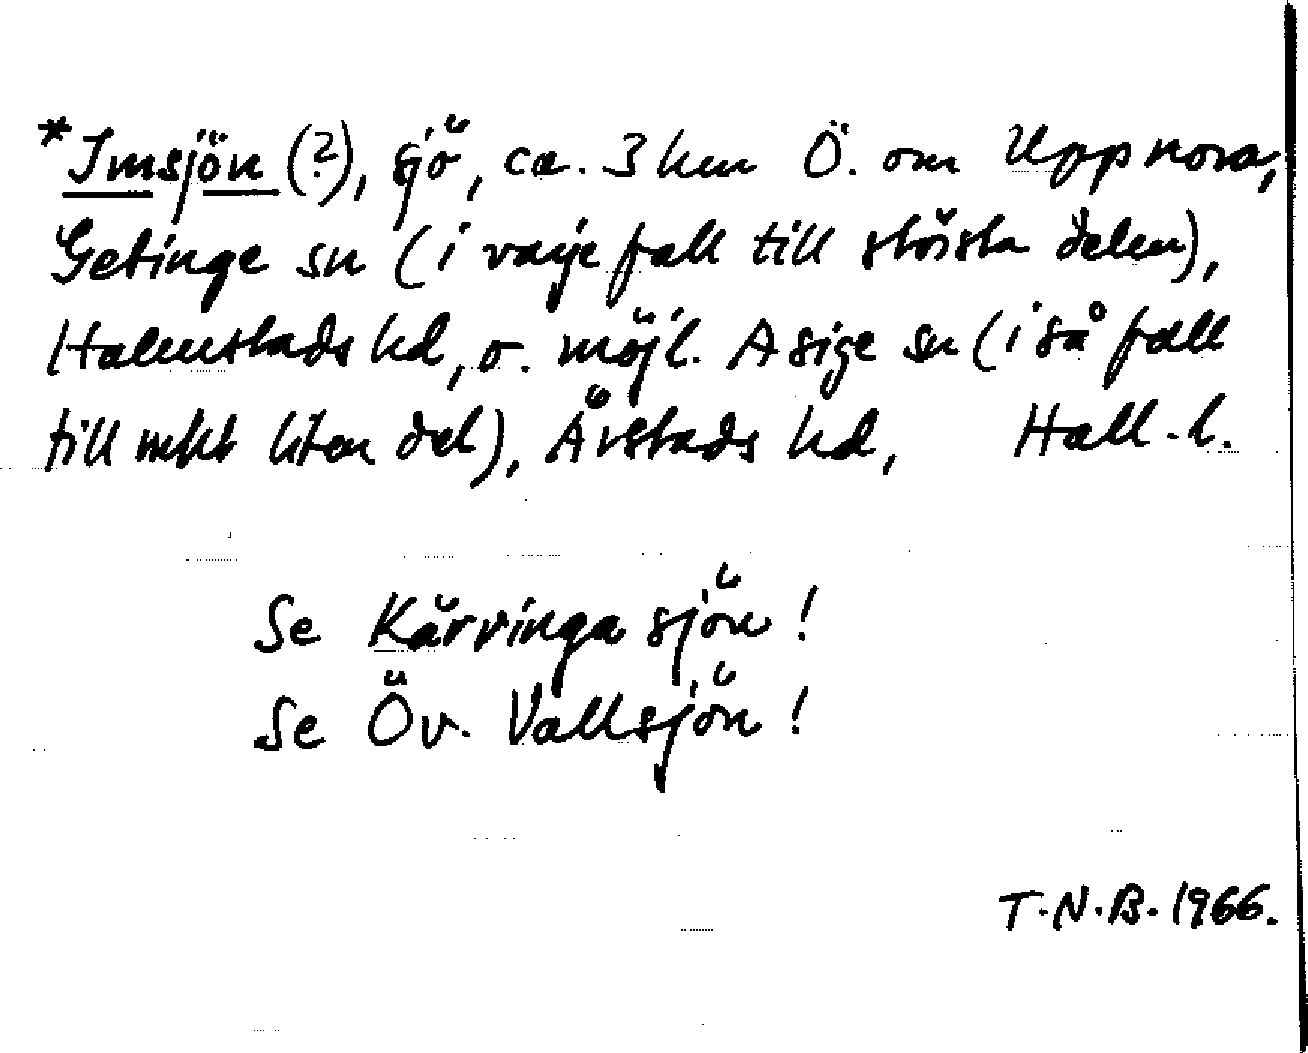 *Imsjön (?), sjö, ca. 3 km Ö. om Uppnora,
Getinge sn (i varje fall till största delen),
Halmstads hd, o. möjl. Asige sn (i så fall
till mkt liten del), Årstads hd, Hall. l.
Se Kärringasjön!
Se Öv. Vallsjön!
T.N.B. 1966.